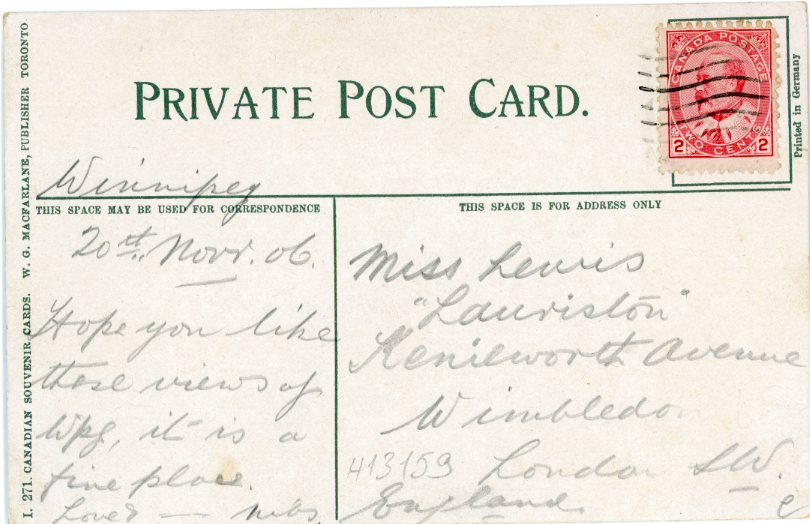 PRIVATE POST CARD.
CANADA POSTAGE
2 TWO CENTS 2
Printed in Germany
I. 271. CANADIAN SOUVENIR CARDS. W. G. MACFARLANE, PUBLISHER TORONTO
Winnipeg
THIS SPACE MAY BE USED FOR CORRESPONDENCE
20th Novr. 06.
Hope you like
these views of
Wpg, it is a
fine place.
Love
THIS SPACE IS FOR ADDRESS ONLY
Miss Lewis
"Lauriston"
Kenilworth Avenue
Wimbledon
413159 London SW.
England